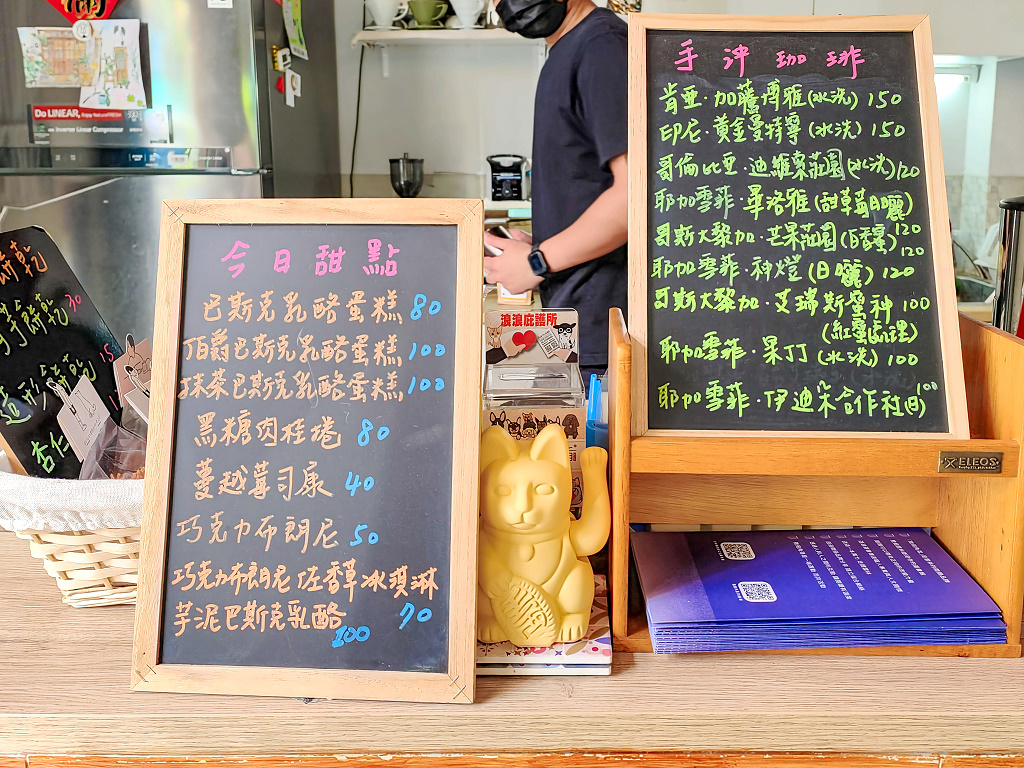 Do LINEAR.
Inverter Linear Compressor
餅乾
30
造形餅乾
15
杏仁
今日甜點
巴斯克乳酪蛋糕 80
伯爵巴斯克乳酪蛋糕 100
抹茶巴斯克乳酪蛋糕 100
黑糖肉桂捲 80
蔓越莓司康 40
巧克力布朗尼 50
巧克力布朗尼佐香草冰淇淋 70
芋泥巴斯克乳酪 100
浪浪庇護所
手沖咖啡
肯亞·加騰博雅(水洗) 150
印尼·黃金曼特寧(水洗) 150
哥倫比亞·迪維索莊園(水洗) 120
耶加雪菲·畢洛雅(甜草莓日曬) 120
哥斯大黎加·芒果莊園(白香蕉) 120
耶加雪菲·神燈(日曬) 120
哥斯大黎加·艾瑞斯蜜神 100
(紅蜜處理)
耶加雪菲·果丁(水洗) 100
耶加雪菲·伊迪朵合作社(日) 100
ELEOS